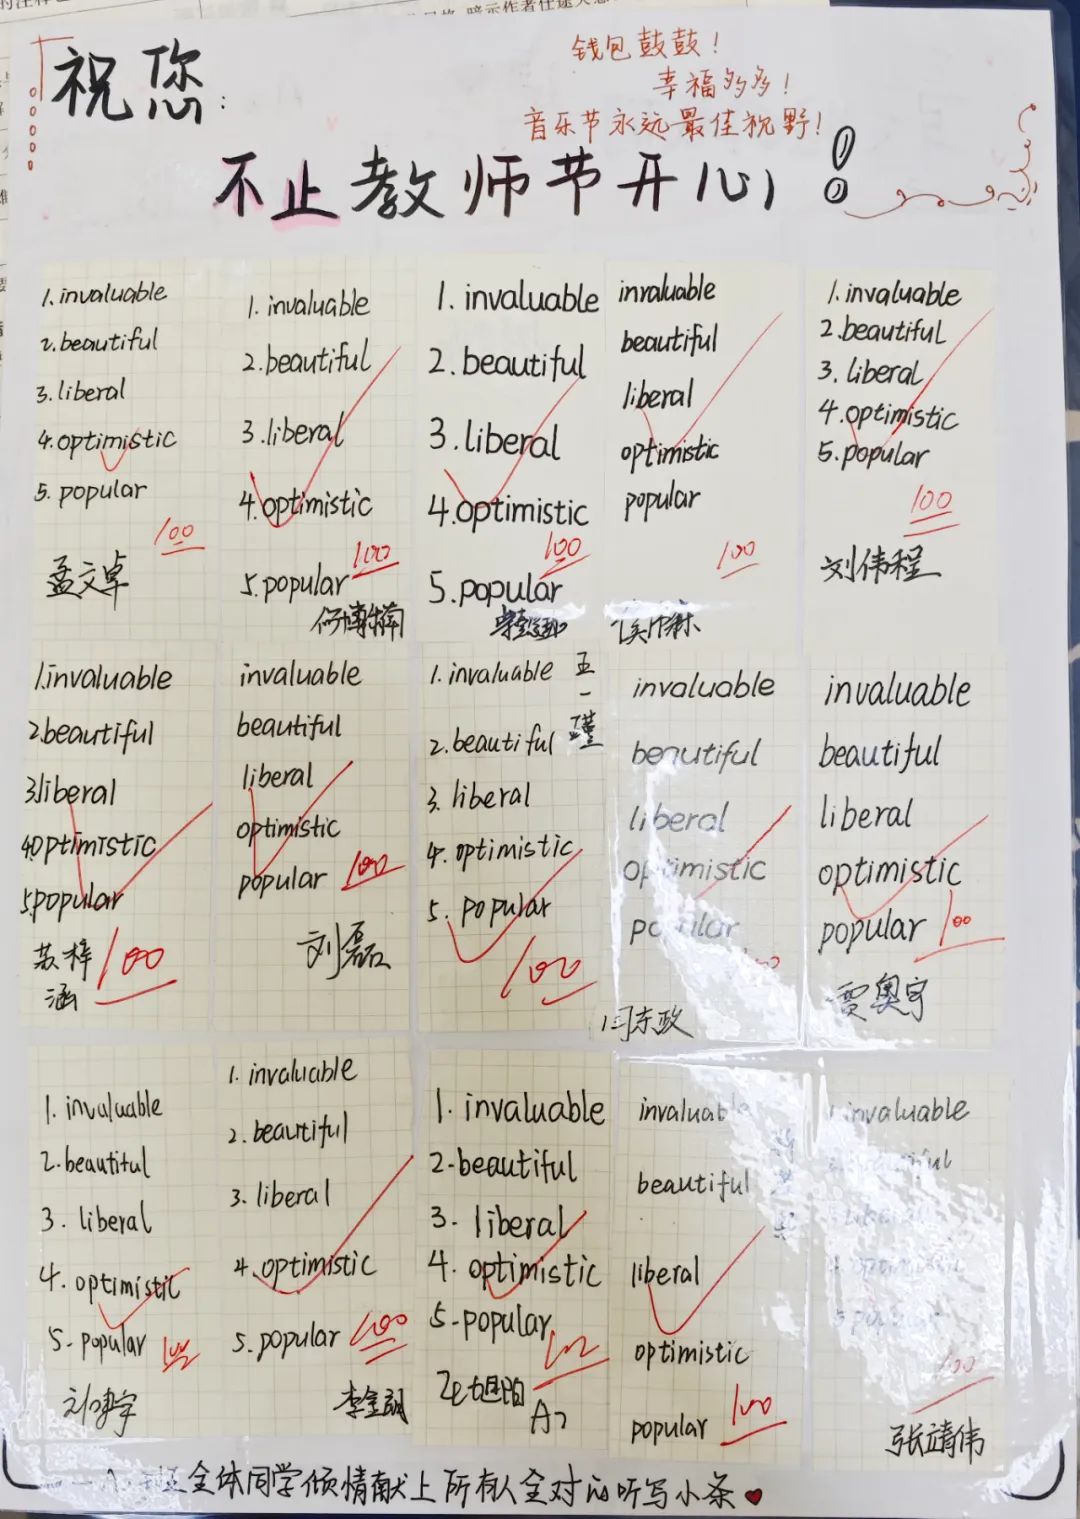 祝您:
钱包鼓鼓!
幸福多多!
音乐节永远最佳视野!
不止教师节开心!
1. invaluable
2. beautiful
3. liberal
4. optimistic
5. popular
100
孟文卓
1. invaluable
2. beautiful
3. liberal
4. optimistic
100
5. popular
1. invaluable
2. beautiful
3. liberal
4. optimistic
100
5. popular
invaluable
beautiful
liberal
optimistic
popular
100
1. invaluable
2. beautiful
3. liberal
4. optimistic
5. popular
100
刘伟程
1. invaluable
2. beautiful
3. liberal
4. optimistic
5. popular
100
苏梓
涵
invaluable
beautiful
liberal
optimistic
popular
100
刘磊
1. invaluable
2. beautiful
3. liberal
4. optimistic
5. popular
100
invaluable
beautiful
liberal
optimistic
popular
100
闫东政
invaluable
beautiful
liberal
optimistic
popular
100
贾奥宇
1. invaluable
2. beautiful
3. liberal
4. optimistic
5. popular
100
1. invaluable
2. beautiful
3. liberal
4. optimistic
5. popular
100
1. invaluable
2. beautiful
3. liberal
4. optimistic
5. popular
100
invaluable
beautiful
liberal
optimistic
popular
100
1. invaluable
2. beautiful
3. liberal
4. optimistic
5. popular
100
张靖伟
班全体同学倾情献上所有人全对的听写小条